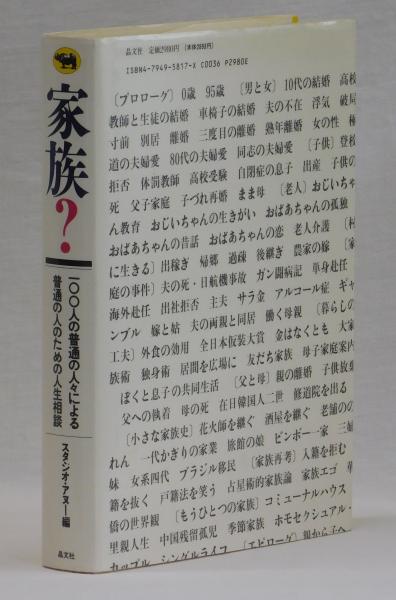 家族?
一〇〇人の普通の人々による
普通の人のための人生相談
スタジオ・アヌー編
晶文社
晶文社 定価2980円
ISBN4-7949-5817-X C0036 P2980E
〔プロローグ〕0歳 95歳 〔男と女〕10代の結婚 高校
教師と生徒の結婚 車椅子の結婚 夫の不在 浮気 破局
寸前 別居 離婚 三度目の離婚 熟年離婚 女の性 極
道の夫婦愛 80代の夫婦愛 同志の夫婦愛 〔子供〕登校
拒否 体罰教師 高校受験 自閉症の息子 出産 子供の
死 父子家庭 子づれ再婚 まま母 〔老人〕おじいちゃ
ん教育 おじいちゃんの生きがい おばあちゃんの孤独
おばあちゃんの昔話 おばあちゃんの恋 老人介護 〔村
に生きる〕出稼ぎ 帰郷 過疎 後継ぎ 農家の嫁 〔家
庭の事件〕夫の死・日航機事故 ガン闘病記 単身赴任
海外赴任 出社拒否 主夫 サラ金 アルコール症 ギャ
ンブル 嫁と姑 夫の両親と同居 働く母親 〔暮らしの
工夫〕外食の効用 全日本仮装大賞 金はなくとも 大家
族術 独身術 居間を広場に 友だち家族 母子家庭案内
ぼくと息子の共同生活 〔父と母〕親の離婚 子供放棄
父への執着 母の死 在日韓国人二世 修道院を出る
〔小さな家族史〕花火師を継ぐ 酒屋を継ぐ 老舗のの
れん 一代かぎりの家業 旅館の娘 ビンボー一家 三姉
妹 女系四代 ブラジル移民 〔家族再考〕入籍を拒む
籍を抜く 戸籍法を笑う 占星術的家族論 家族エゴ 華
僑の世界観 〔もうひとつの家族〕コミューナルハウス
里親人生 中国残留孤児 季節家族 ホモセクシュアル・
カップル シングルライフ 〔エピローグ〕親から子へ